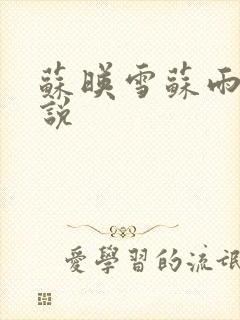 蘇暎雪蘇雨
說
愛學習的流氓